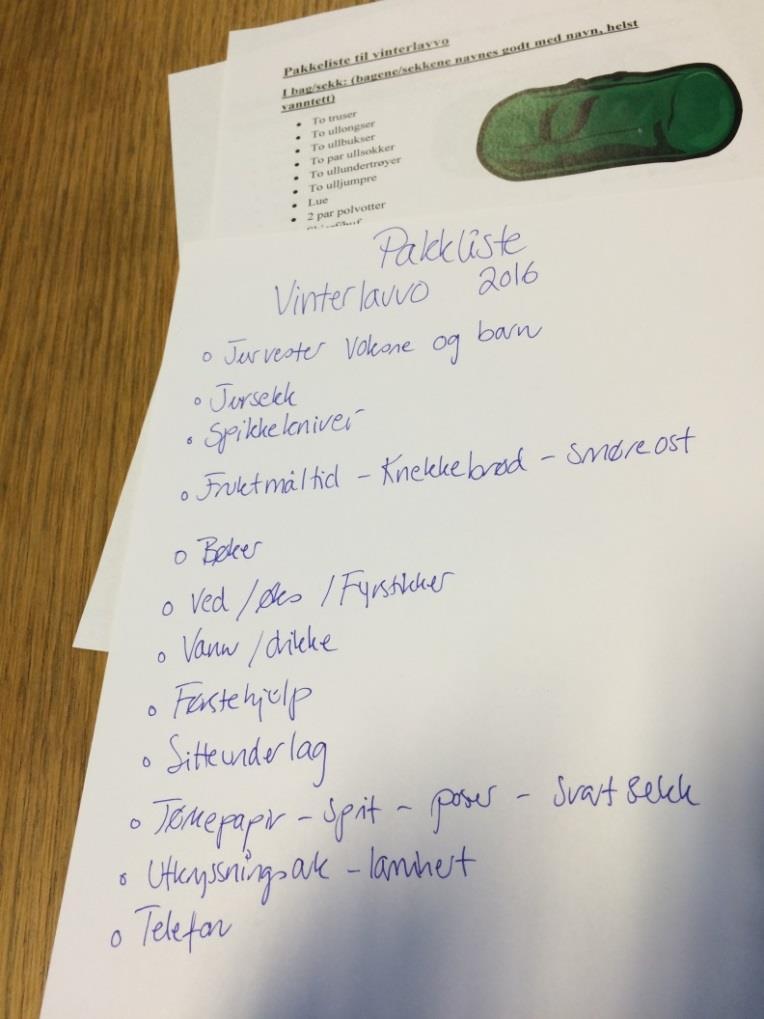 Pakkeliste til vinterlavvo
I bag/sekk: (bagene/sekkene navnes godt med navn, helst
vanntett)
• To truser
• To ullongser
• To ullbukser
• To par ullsokker
• To ullundertrøyer
• To ulljumpre
• Lue
• 2 par polvotter
Pakkliste
Vinterlavvo 2016
o Turvester Voksne og barn
o Tursekk
o Spikkekniver
o Fruktmåltid - Knekkebrød - smøreost
o Bøker
o Ved / Øks / Fyrstikker
o Vann / drikke
o Førstehjelp
o Sitteunderlag
o Tørkepapir - Sprit - poser - Svart sekk
o Utkryssningsark - laminert
o Telefon